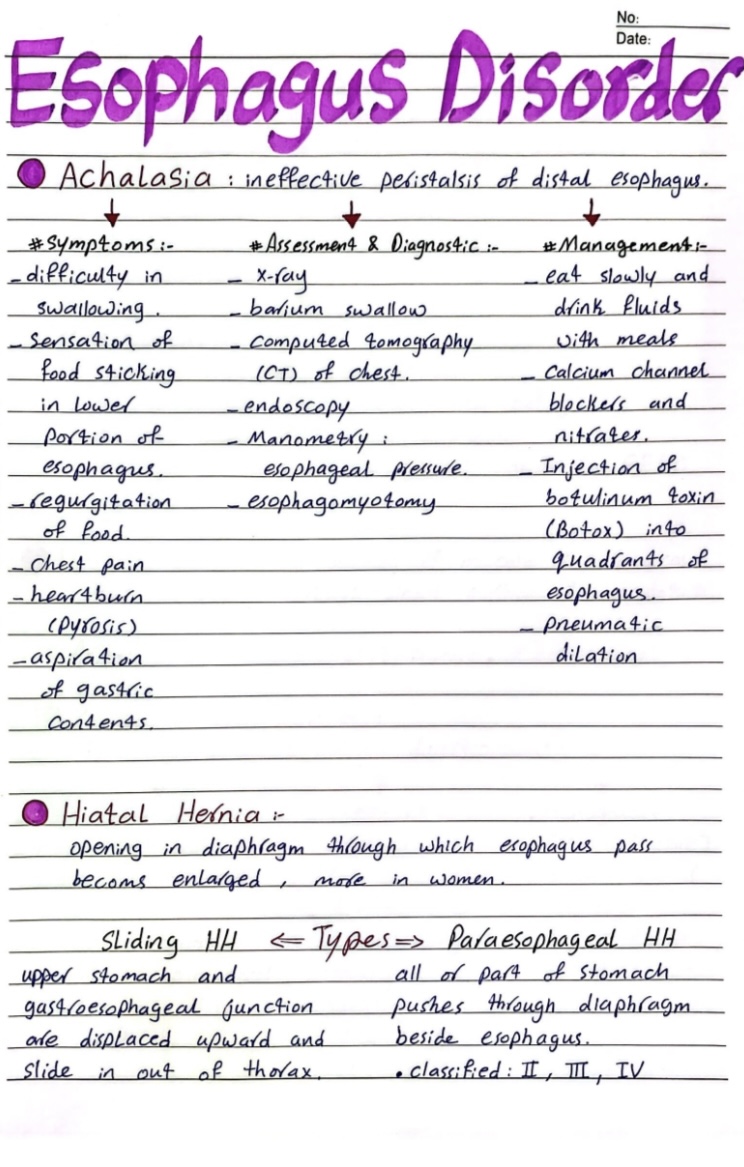 No:
Date:
Esophagus Disorder
Achalasia : ineffective peristalsis of distal esophagus.
#Symptoms:-
- difficulty in
swallowing.
- Sensation of
food sticking
in lower
portion of
esophagus.
- regurgitation
of food.
- chest pain
- heartburn
(Pyrosis)
- aspiration
of gastric
contents.
#Assessment & Diagnostic :-
- x-ray
- barium swallow
- computed tomography
(CT) of chest.
- endoscopy
- Manometry :
esophageal pressure.
- esophagomyotomy
#Management:-
- eat slowly and
drink fluids
with meals
- Calcium channel
blockers and
nitrates.
- Injection of
botulinum toxin
(Botox) into
quadrants of
esophagus.
- pneumatic
dilation
Hiatal Hernia :-
opening in diaphragm through which esophagus pass
becoms enlarged , more in women.
Sliding HH <= Types => Paraesophageal HH
upper stomach and
gastroesophageal junction
are displaced upward and
slide in out of thorax.
all or part of stomach
pushes through diaphragm
beside esophagus.
• classified : II , III , IV